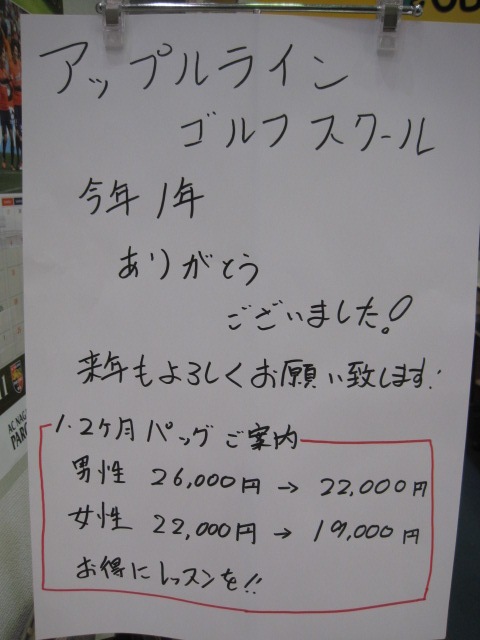 アップルライン
ゴルフスクール
今年1年
ありがとう
ございました!
来年もよろしくお願い致します!
1.2ヶ月パックご案内
男性 26,000円 → 22,000円
女性 22,000円 → 19,000円
お得にレッスンを!!
AC NAG
PARC